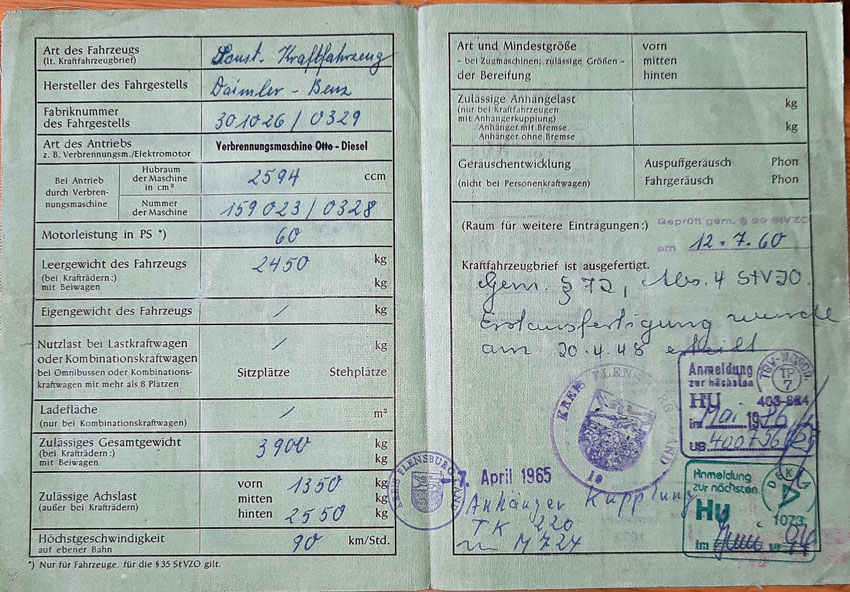 Art des Fahrzeugs
(lt. Kraftfahrzeugbrief)
Sonst. Kraftfahrzeug
Hersteller des Fahrgestells
Daimler - Benz
Fabriknummer
des Fahrgestells
301026/0329
Art des Antriebs
z. B. Verbrennungsm./Elektromotor
Verbrennungsmaschine Otto - Diesel
Bei Antrieb
durch Verbren-
nungsmaschine
Hubraum
der Maschine
in cm³
2594 ccm
Nummer
der Maschine
159023/0328
Motorleistung in PS *)
60
Leergewicht des Fahrzeugs
(bei Krafträdern:)
mit Beiwagen
2450 kg
kg
Eigengewicht des Fahrzeugs / kg
Nutzlast bei Lastkraftwagen
oder Kombinationskraftwagen
/ kg
bei Omnibussen oder Kombinations-
kraftwagen mit mehr als 8 Plätzen
Sitzplätze Stehplätze
Ladefläche
(nur bei Kombinationskraftwagen)
/ m²
Zulässiges Gesamtgewicht
(bei Krafträdern:)
mit Beiwagen
3900 kg
kg
Zulässige Achslast
(außer bei Krafträdern)
vorn 1350 kg
mitten kg
hinten 2550 kg
Höchstgeschwindigkeit
auf ebener Bahn
90 km/Std.
*) Nur für Fahrzeuge, für die § 35 StVZO gilt.
Art und Mindestgröße
- bei Zugmaschinen; zulässige Größen -
der Bereifung
vorn
mitten
hinten
Zulässige Anhängelast
(nur bei Kraftfahrzeugen
mit Anhängerkupplung)
Anhänger mit Bremse
Anhänger ohne Bremse
kg
kg
Geräuschentwicklung
(nicht bei Personenkraftwagen)
Auspuffgeräusch Phon
Fahrgeräusch Phon
(Raum für weitere Eintragungen:)
Geprüft gem. § 29 StVZO
am 12.7.60
Kraftfahrzeugbrief ist ausgefertigt.
Gem. § 72, Abs. 4 StVZO.
Erstausfertigung wurde
am 20.4.48 erteilt
KREIS FLENSBURG-LAND
10
TÜV-NORDD.
TP
7
403-824
Anmeldung
zur nächsten
HU
im Mai 1986
KREIS FLENSBURG-LAND
April 1965
Anhänger Kupplung
TK 220
M 724
Anmeldung
zur nächsten
HU
im Juni 1994
DEKRA
1073